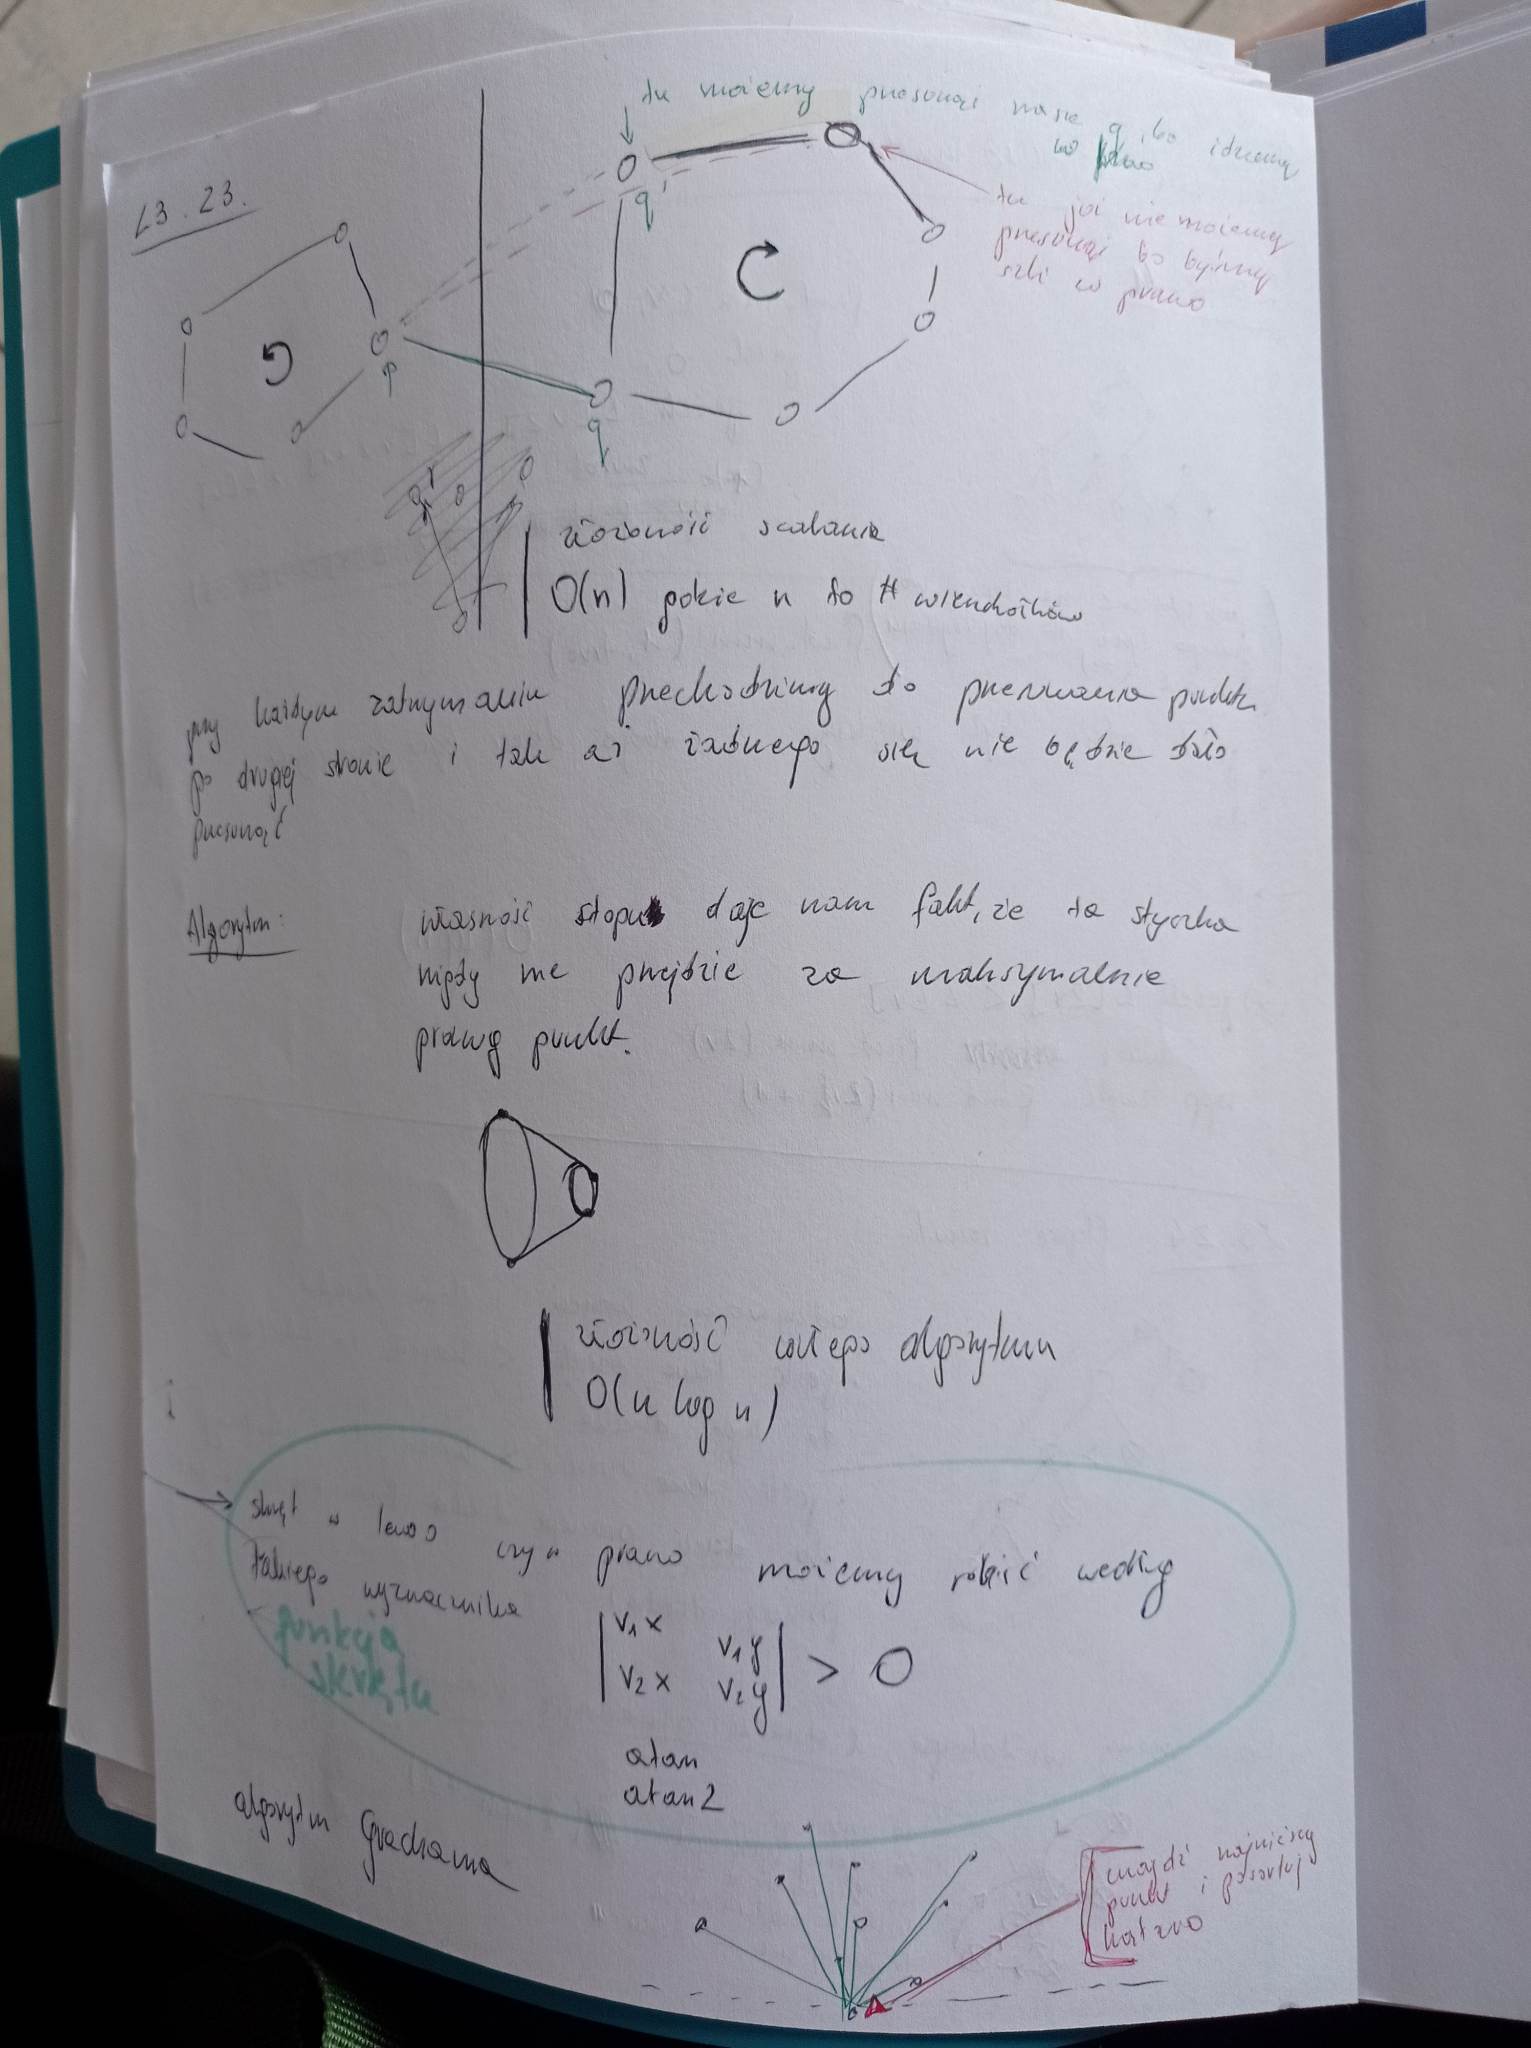 L3.23.
tu możemy przesunąć nasze q, bo idziemy
w lewo
tu już nie możemy
przesunąć bo byśmy
szli w prawo
q'
p
q
złożoność scalania
O(n) gdzie n to # wierzchołków
przy każdym zatrzymaniu przechodzimy do przesuwania punktu
po drugiej stronie i tak aż żadnego się nie będzie dało
przesunąć
Algorytm:
własność stopu daje nam fakt, że ta styczka
nigdy nie przejdzie za maksymalnie
prawy punkt.
złożoność całego algorytmu
O(n log n)
skręt w lewo czy w prawo możemy robić według
takiego wyznacznika
funkcja
skrętu
| v₁x v₁y |
| v₂x v₂y | > 0
atan
atan2
algorytm Grachama
znajdź najniższy
punkt i posortuj
kątowo